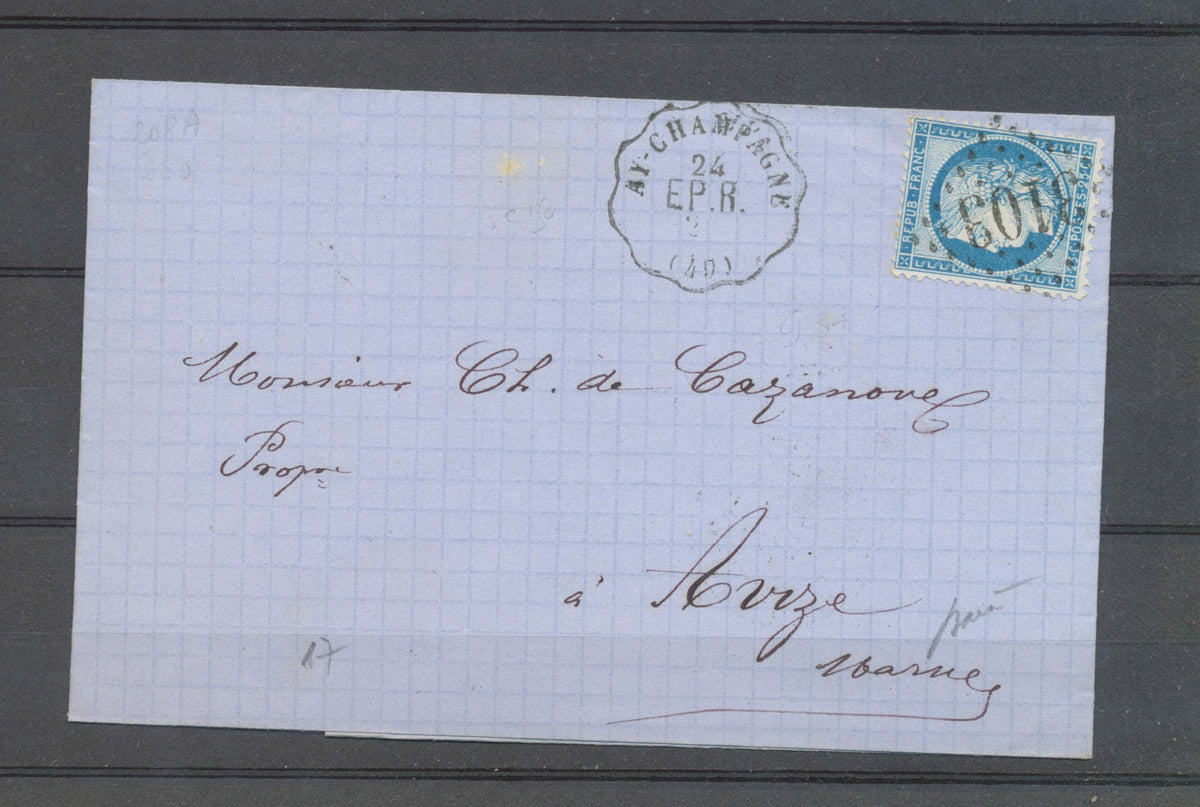 AY-CHAMPAGNE
24
E.P.R.
(49)
REPUB·FRANC·
25 C. POSTES 25 C.
3103
Monsieur Ch. de Cazanove
Propre
à Avize
Marne
17